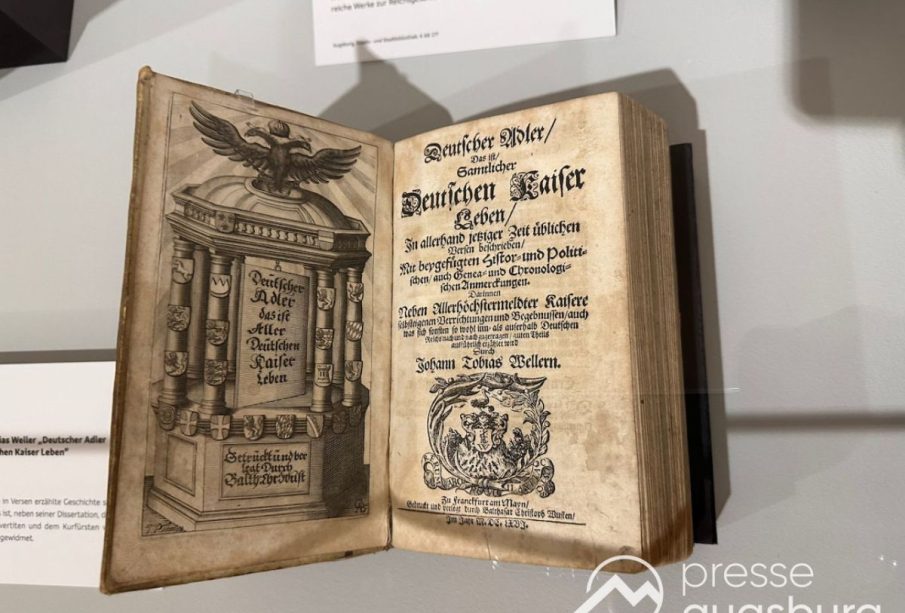 reiche Werke zur Reichsgesch
Deutscher
Adler
das ist
Aller
Deutschen
Kaiser
Leben
Getruckt und ver
legt Durch
Balth. Chr. Wust
Deutscher Adler/
Das ist/
Samtlicher
Deutschen Kaiser
Leben/
In allerhand jetziger Zeit üblichen
Versen beschrieben/
Mit beygefügten Histor- und Politi-
schen/ auch Genea- und Chronologi-
schen Anmerckungen.
Darinnen
Neben Allerhöchstermeldter Kaisere
selbsteigenen Verrichtungen und Begebnussen/ auch
was sich sonsten so wohl inn- als auserhalb Deutschen
Reichs nach und nach zugetragen/ guten Theils
ausführlich erzählet wird
Durch
Johann Tobias Wellern.
Zu Franckfurt am Mayn/
Gedruckt und verlegt durch Balthasar Christoph Wusten/
Im Jahr M. DC. LXVI.
ias Weller „Deutscher Adler
hen Kaiser Leben“
in Versen erzählte Geschichte
ist, neben seiner Dissertation, d
vertiten und dem Kurfürsten
gewidmet.
presse
augsburg